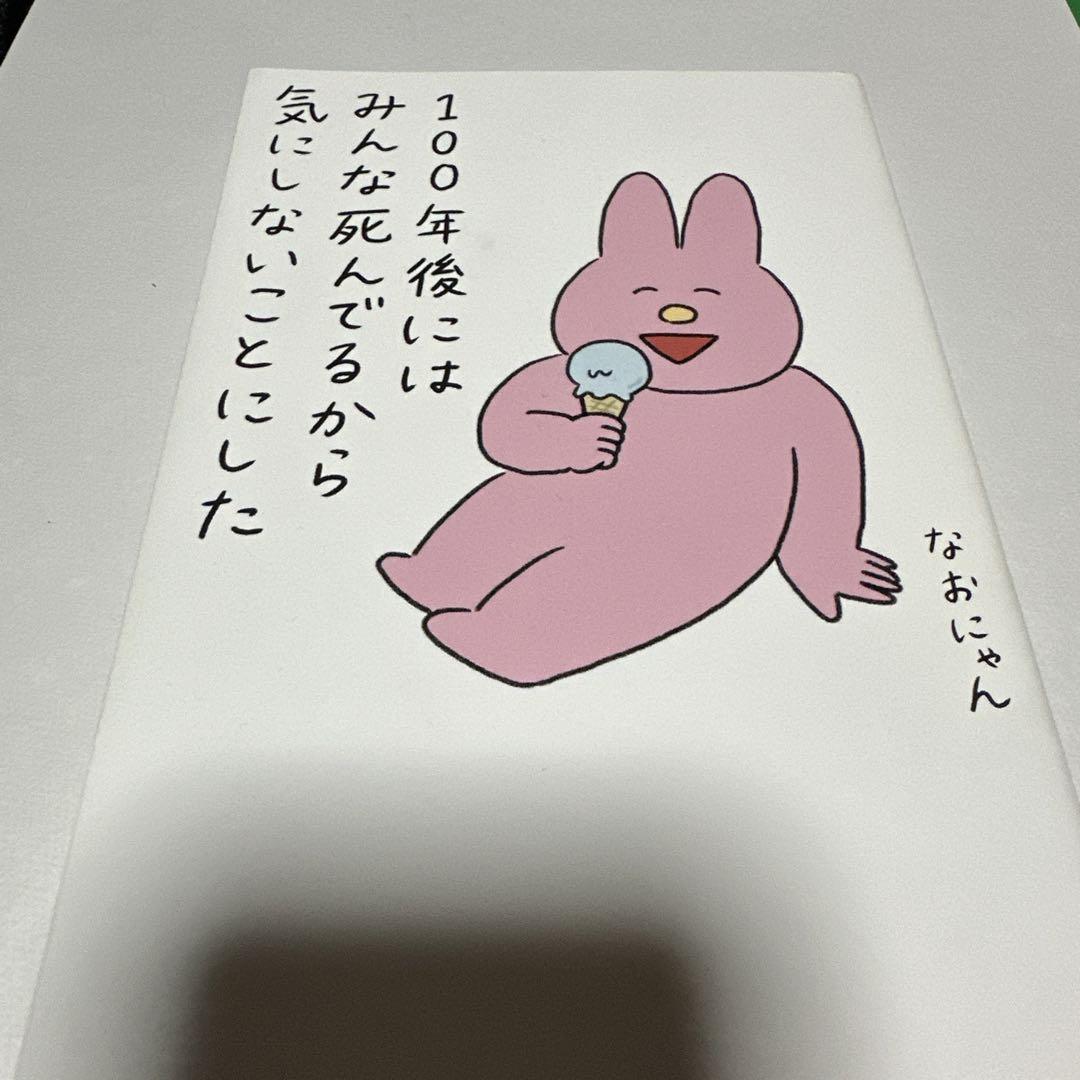 100年後には
みんな死んでるから
気にしないことにした
なおにゃん